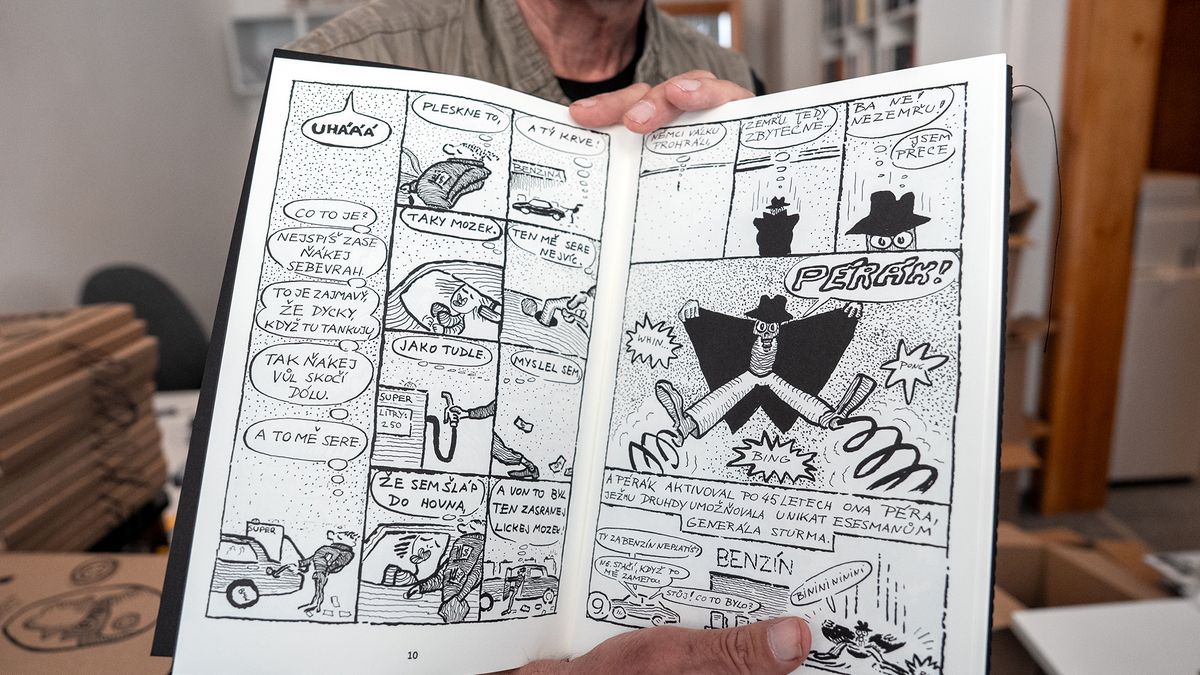 UHÁÁÁ
CO TO JE?
NEJSPÍŠ ZASE
ŇÁKEJ
SEBEVRAH.
TO JE ZAJMAVÝ,
ŽE DYCKY,
KDYŽ TU TANKUJU
TAK ŇÁKEJ
VŮL SKOČÍ
DOLU.
A TO MĚ SERE.
SUPER
PLESKNE TO,
A TÝ KRVE!
BENZINA
TAKY MOZEK.
TEN MĚ SERE
NEJVÍC.
JAKO TUDLE.
SUPER
LITRY:
250
MYSLEL SEM,
ŽE SEM ŠLÁP
DO HOVNA,
A VON TO BYL
TEN ZASRANEJ
LICKEJ MOZEK!
10
NĚMCI VÁLKU
PROHRÁLI.
ZEMŘU TEDY
ZBYTEČNĚ.
BA NE!
NEZEMŘU!
JSEM
PŘECE
PÉRÁK!
WHIN.
PONG
BING
A PÉRÁK AKTIVOVAL PO 45 LETECH ONA PÉRA,
JEŽ MU DRUHDY UMOŽŇOVALA UNIKAT ESESMANŮM
GENERÁLA STURMA.
TY ZA BENZÍN NEPLATÍŠ?
NE. STAČÍ, KDYŽ TO
TU ZAMETOU.
BENZÍN
STŮJ! CO TO BYLO?
BININININÍNI